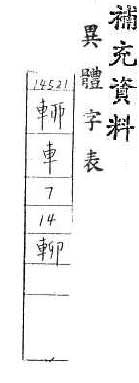 補充資料
異體字表
14521
車
7
14